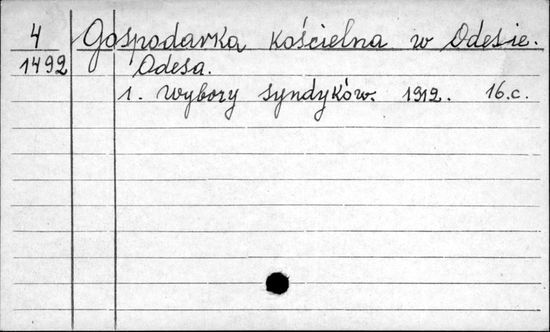 4 Gospodarka kościelna w Odesie.
1492 Odesa.
1. Wybory syndyków. 1912. 16.c.